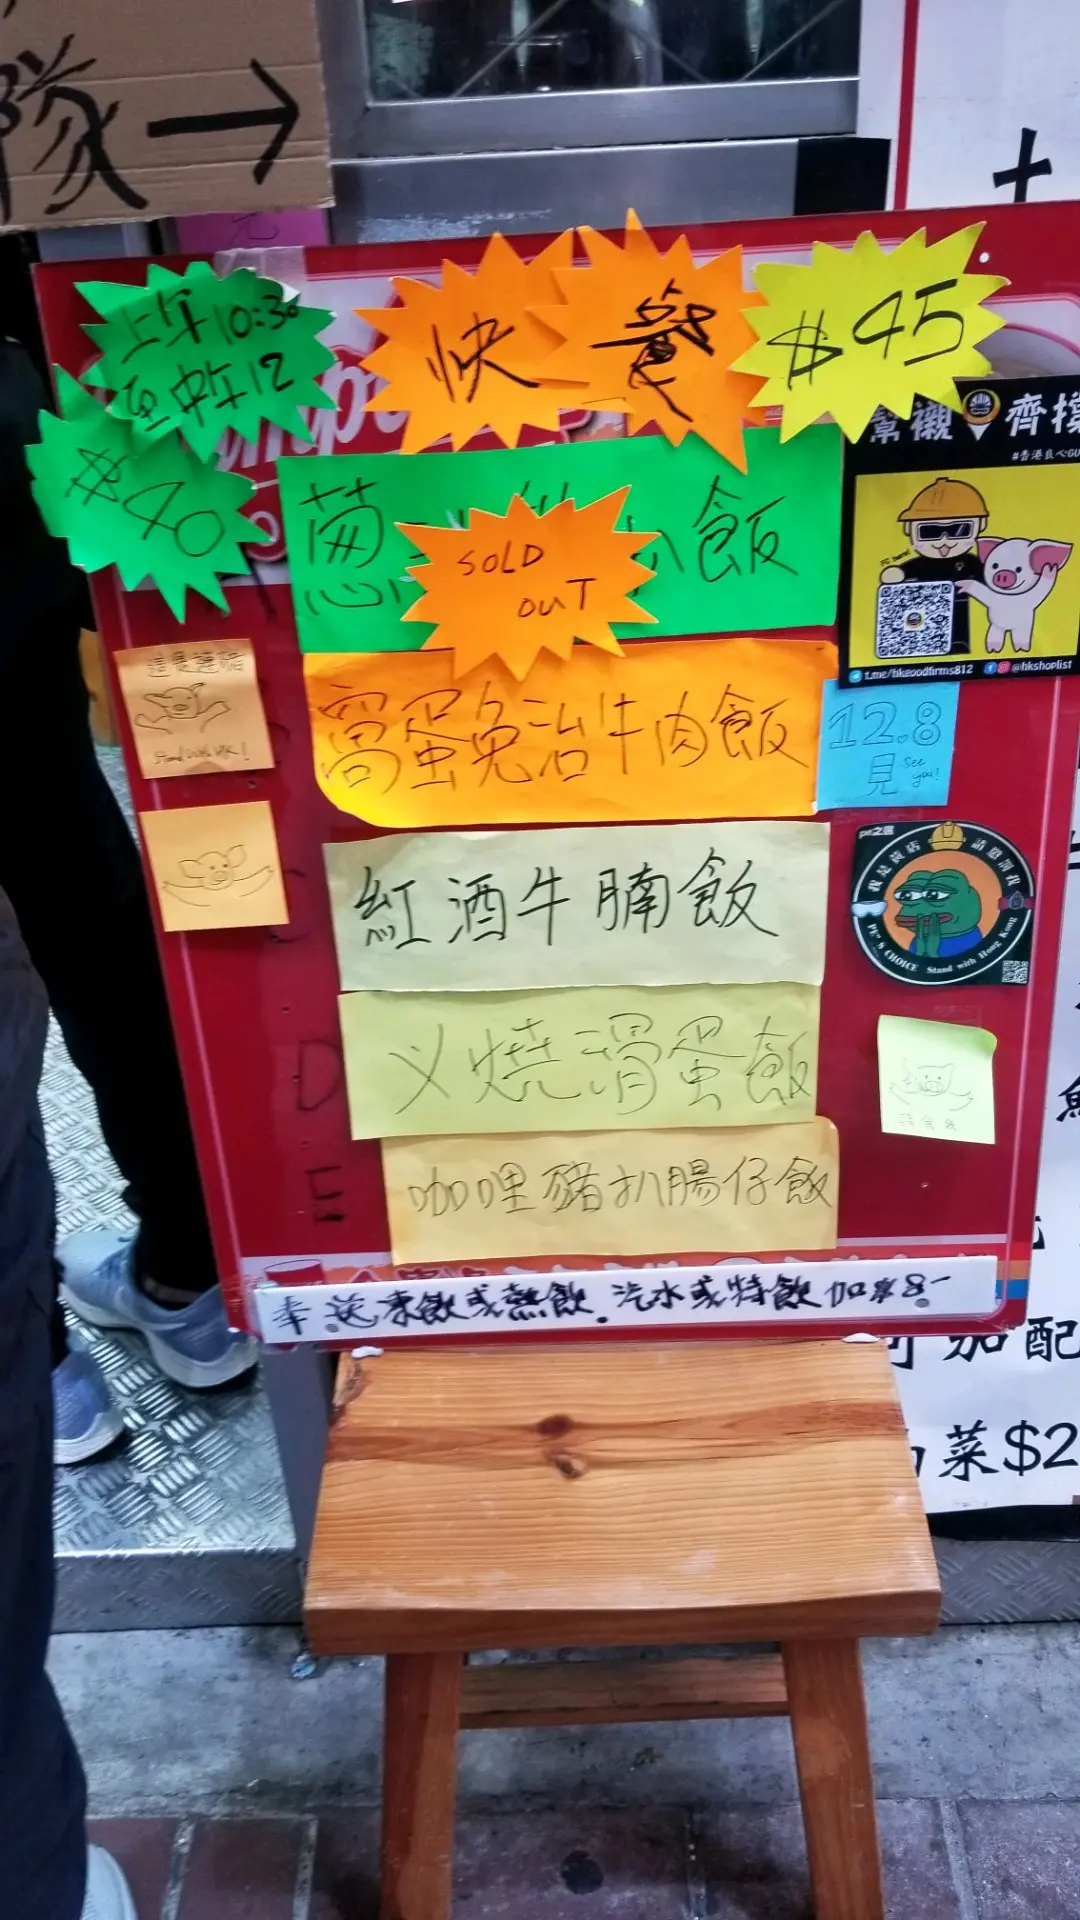 隊 →
上午10:30
至中午12
$40
快餐
$45
幫襯 齊撐
#香港良心GU
t.me/hkgoodfirms812 @hkshoplist
蔥 扒飯
SOLD
OUT
Stand with HK!
窩蛋免治牛肉飯
12.8
見 See you!
紅酒牛腩飯
pe之選
我是黃店 請懲罰我
PE'S CHOICE Stand with Hong Kong
D 乂燒滑蛋飯
E 咖哩豬扒腸仔飯
奉送凍飲或熱飲 汽水或特飲加$8-
加配
菜$2